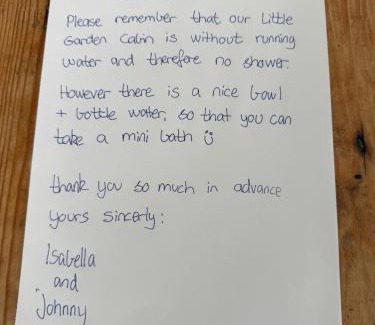 Please remember that our Little
Garden Cabin is without running
water and therefore no shower.
However there is a nice bowl
+ bottle water, so that you can
take a mini bath ü
thank you so much in advance
yours sincerly:
Isabella
and
Johnny